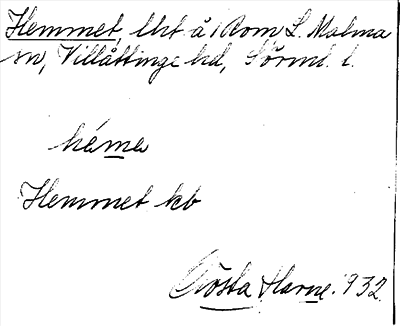 Hemmet, lht å Rom L. Malma
sn, Villåttinge hd, Sörml. l.
héme
Hemmet kb
Gösta Harne. 932